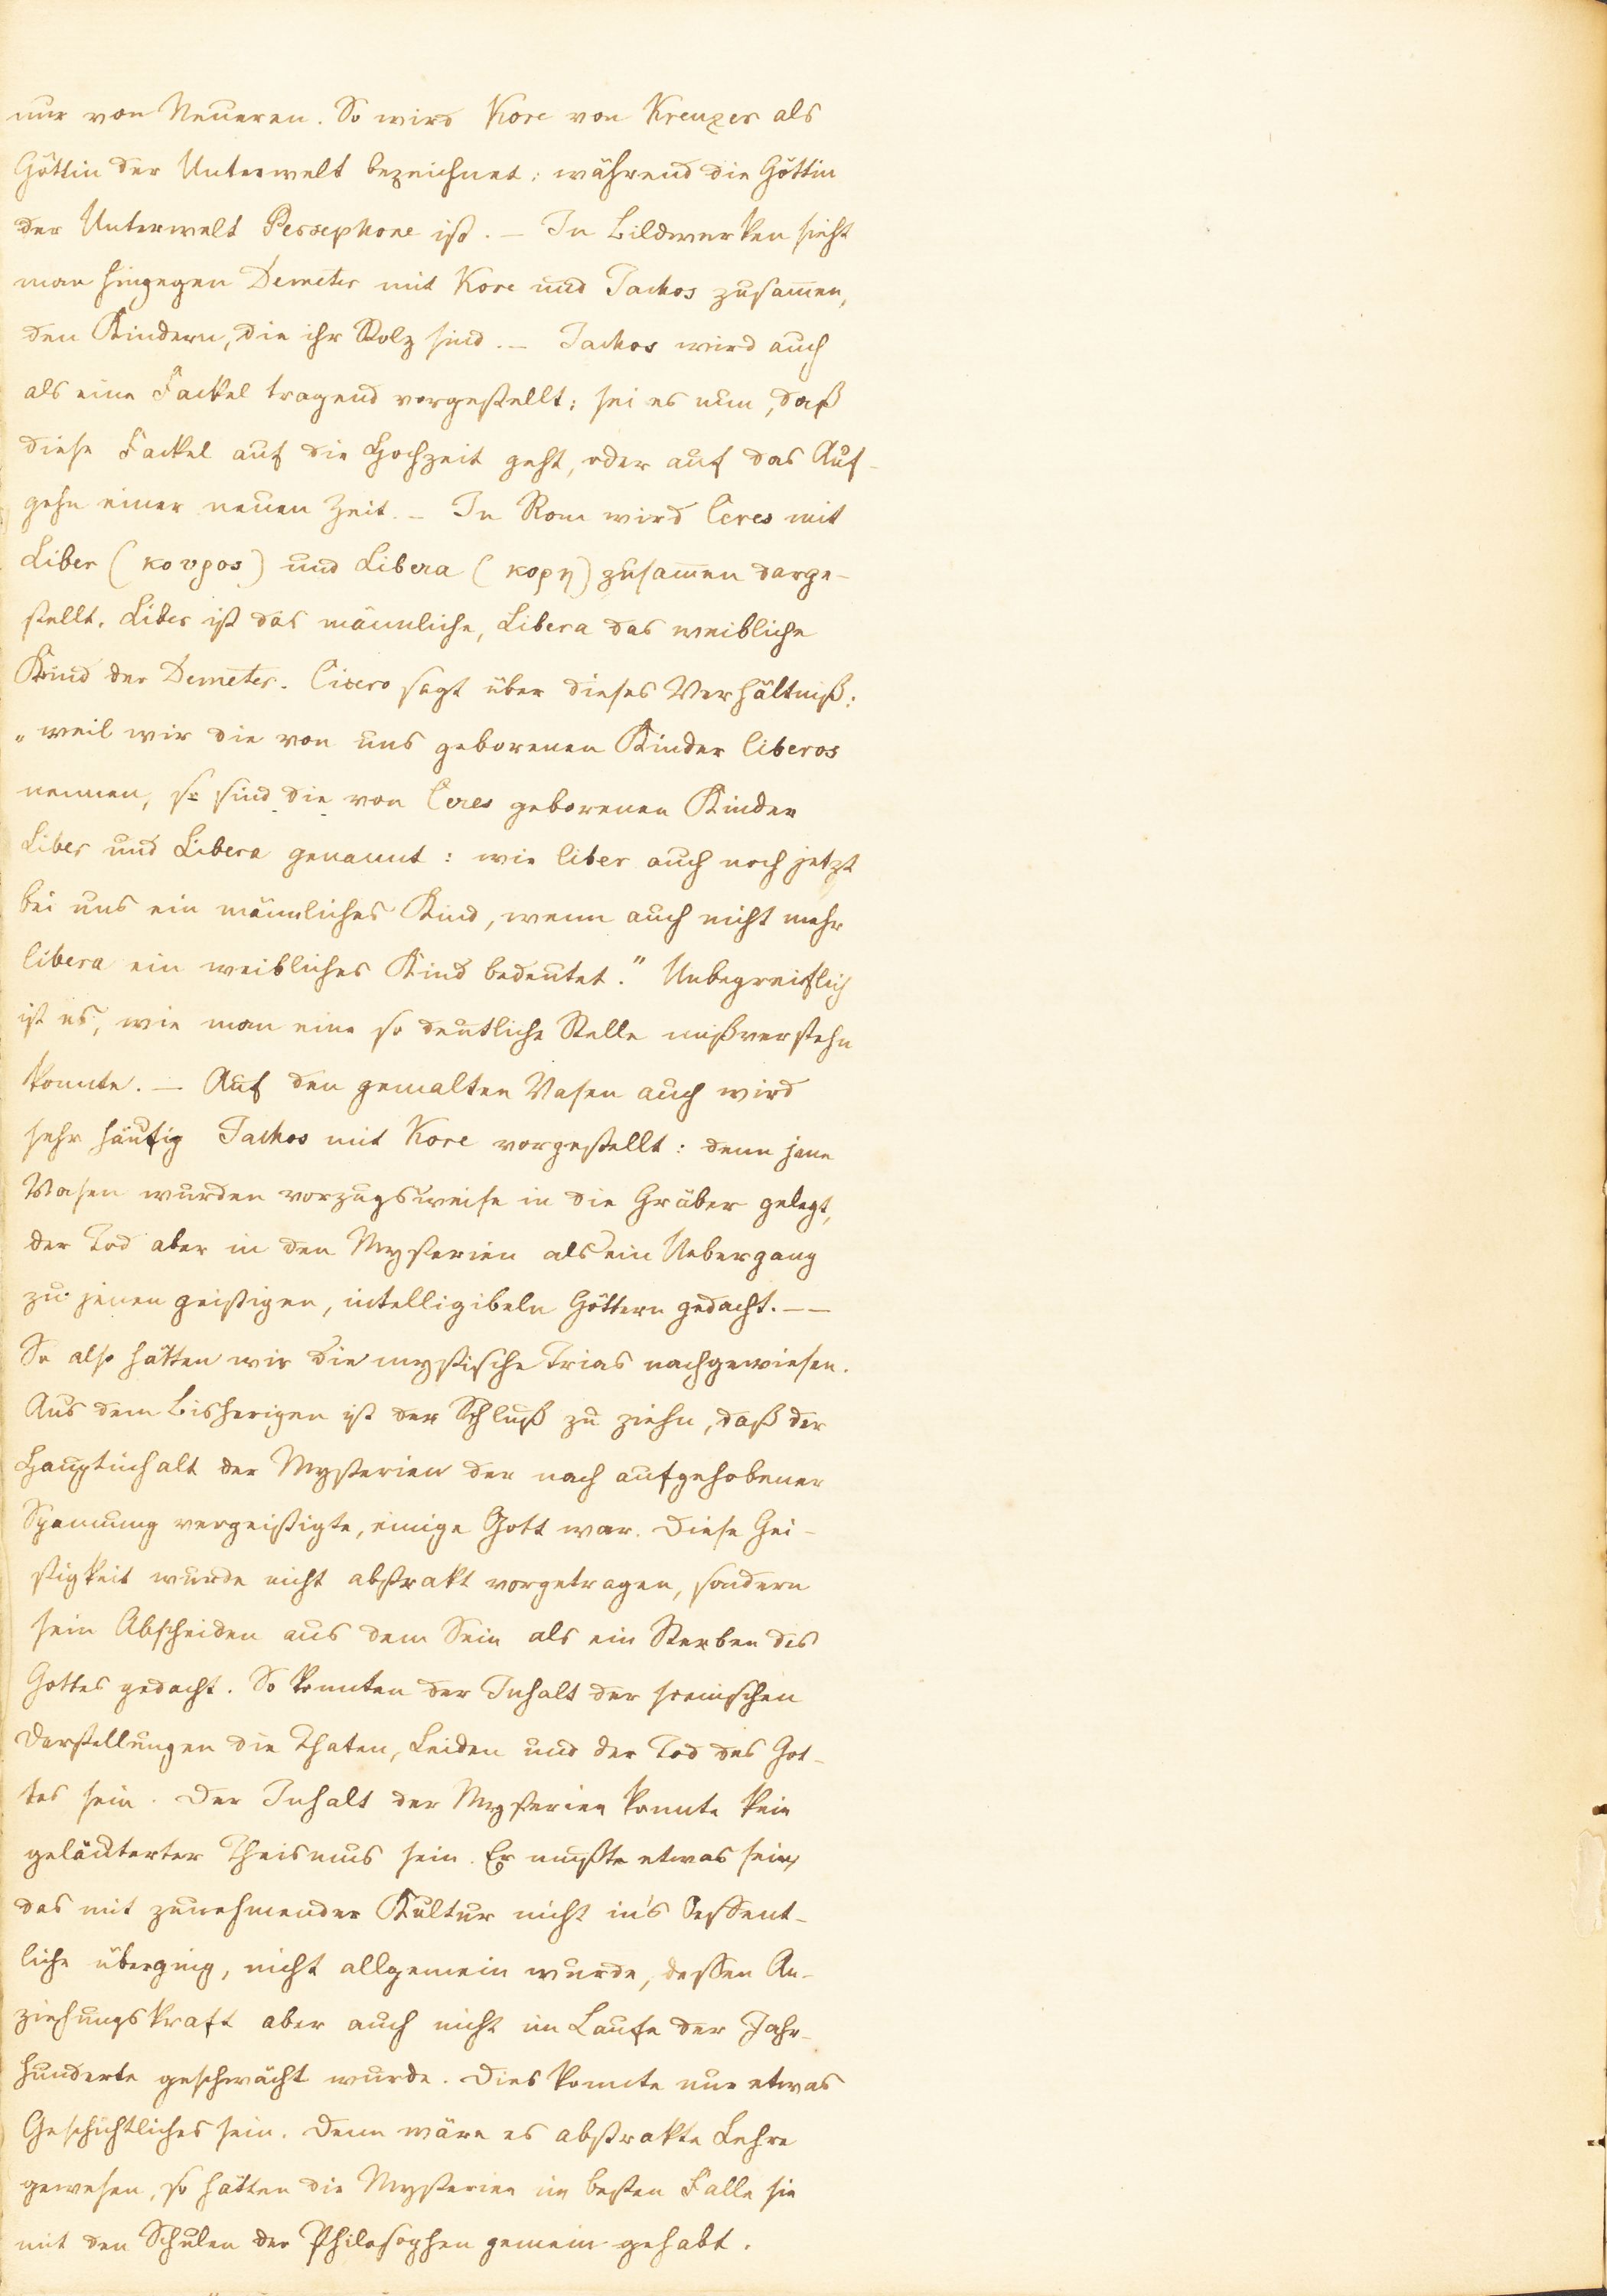 nur von Neueren. So wird Kore von Kreuzer als
Göttin der Unterwelt bezeichnet: während die Göttin
der Unterwelt Persephone ist. – In Bildwerken sieht
man hingegen Demeter mit Kore und Jackos zusam̅en,
den Kindern, die ihr Stolz sind. – Jackos wird auch
als eine Fackel tragend vorgestellt; sei es nun, daß
diese Fackel auf die Hochzeit geht, oder auf das Auf-
gehn einer neuen Zeit. – In Rom wird Ceres mit
Liber (κουρος) und Libera (κορη) zusam̅en darge-
stellt. Liber ist das männliche, Libera das weibliche
Kind der Demeter. Cicero sagt über dieses Verhältniß:
„weil wir die von uns geborenen Kinder liberos
nennen, so sind die von Ceres geborenen Kinder
Liber und Libera genannt: wie liber auch noch jetzt
bei uns ein männliches Kind, wenn auch nicht mehr
libera ein weibliches Kind bedeutet." Unbegreiflich
ist es, wie man eine so deutliche Stelle mißverstehn
konnte. – Auf den gemalten Vasen auch wird
sehr häufig Jackos mit Kore vorgestellt: denn jene
Vasen wurden vorzugsweise in die Gräber gelegt,
der Tod aber in den Mysterien als ein Uebergang
zu jenen geistigen, intelligibeln Göttern gedacht. – –
So also hätten wir die mystische Trias nachgewiesen.
Aus dem Bisherigen ist der Schluß zu ziehn, daß der
Hauptinhalt der Mysterien der nach aufgehobener
Spannung vergeistigte, einige Gott war. Diese Gei-
stigkeit wurde nicht abstrakt vorgetragen, sondern
sein Abscheiden aus dem Sein als ein Sterben des
Gottes gedacht. So konnten der Inhalt der scenischen
Darstellungen die Thaten, Leiden und der Tod des Got-
tes sein. Der Inhalt der Mysterien konnte kein
geläuterter Theismus sein. Er mußte etwas sein,
das mit zunehmender Kultur nicht in's Oeffent-
liche überging, nicht allgemein wurde, dessen An-
ziehungskraft aber auch nicht im Laufe der Jahr-
hunderte geschwächt wurde. Dies konnte nur etwas
Geschichtliches sein. Denn wäre es abstrakte Lehre
gewesen, so hätten die Mysterien im besten Falle sie
mit den Schulen der Philosophen gemein gehabt.